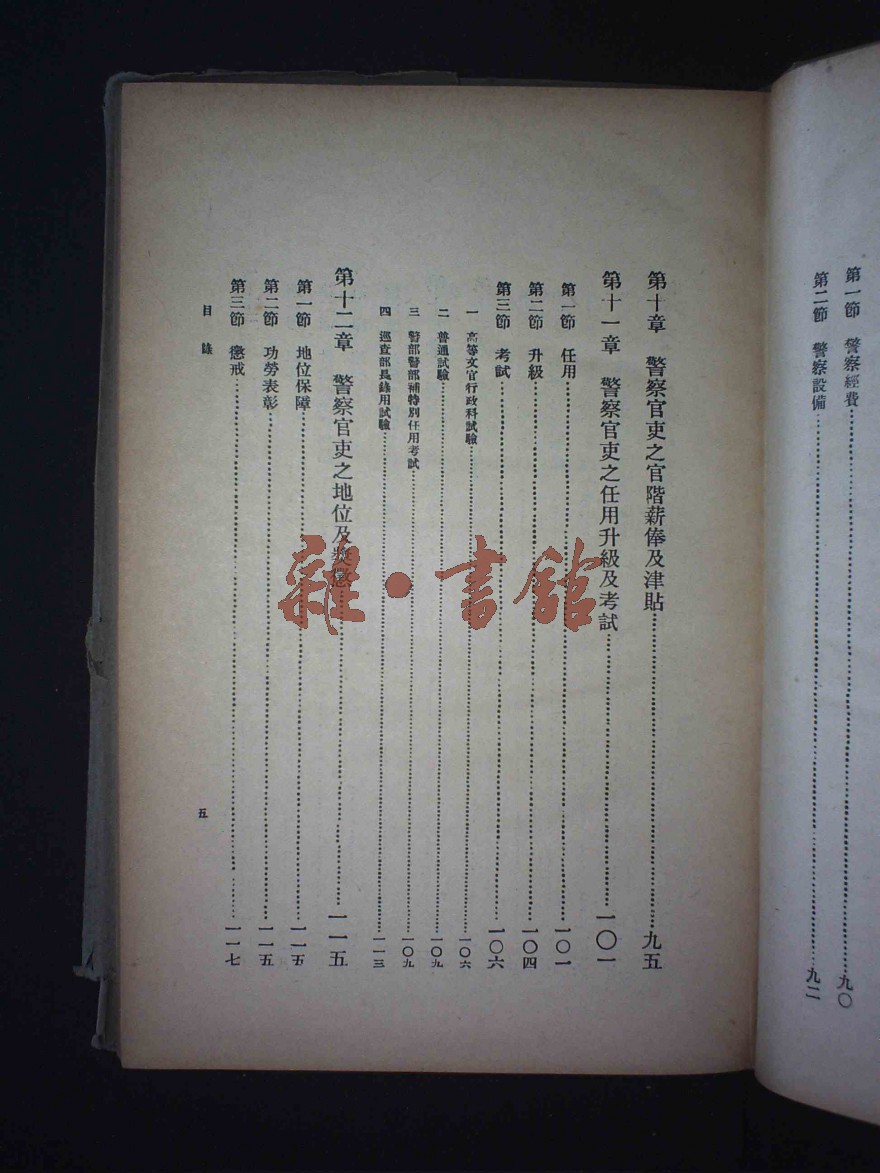 第一節 警察經費 九〇
第二節 警察設備 九二
第十章 警察官吏之官階薪俸及津貼 九五
第十一章 警察官吏之任用升級及考試 一〇一
第一節 任用 一〇一
第二節 升級 一〇四
第三節 考試 一〇六
一 高等文官行政科試驗 一〇六
二 普通試驗 一〇九
三 警部警部補特別任用考試 一〇九
四 巡查部長錄用試驗 一一三
第十二章 警察官吏之地位及獎懲 一一五
第一節 地位保障 一一五
第二節 功勞表彰 一一五
第三節 懲戒 一一七
目錄
五
雜·書館